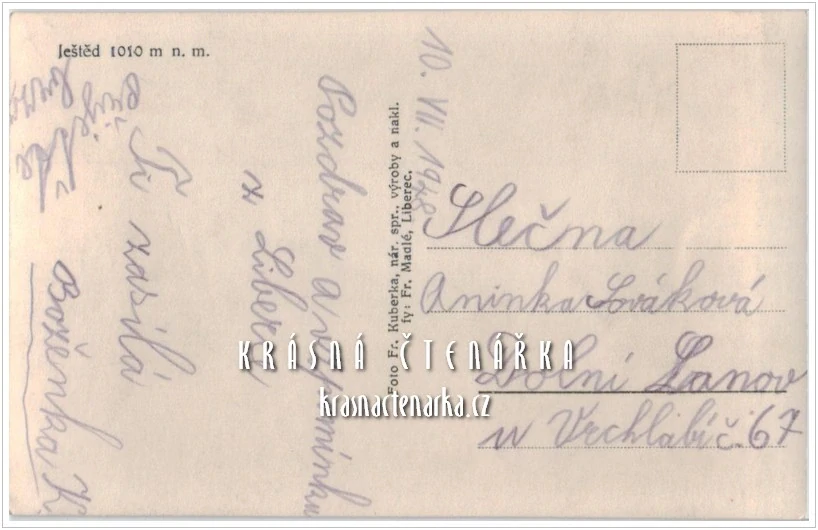 Ještěd 1010 m n. m.
10. VII. 1948
Pozdrav a vzpomínku
z Liberc
Ti zasílá
Boženka K
Foto Fr. Kuberka, nár. spr., výroby a nakl.
fy: Fr. Madlé, Liberec.
Slečna
Aninka
Dolní Lanov
u Vrchlabí č. 67
KRÁSNÁ ČTENÁŘKA
krasnactenarka.cz